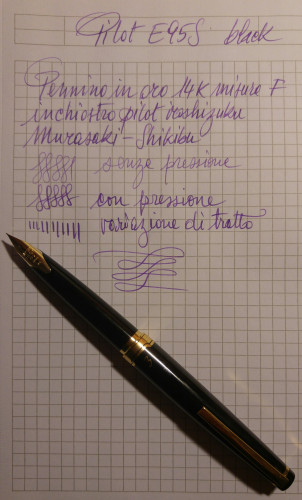 Pilot E95S black
Pennino in oro 14K misura F
inchiostro pilot iroshizuku
Murasaki-Shikibu
senza pressione
con pressione
variazione di tratto